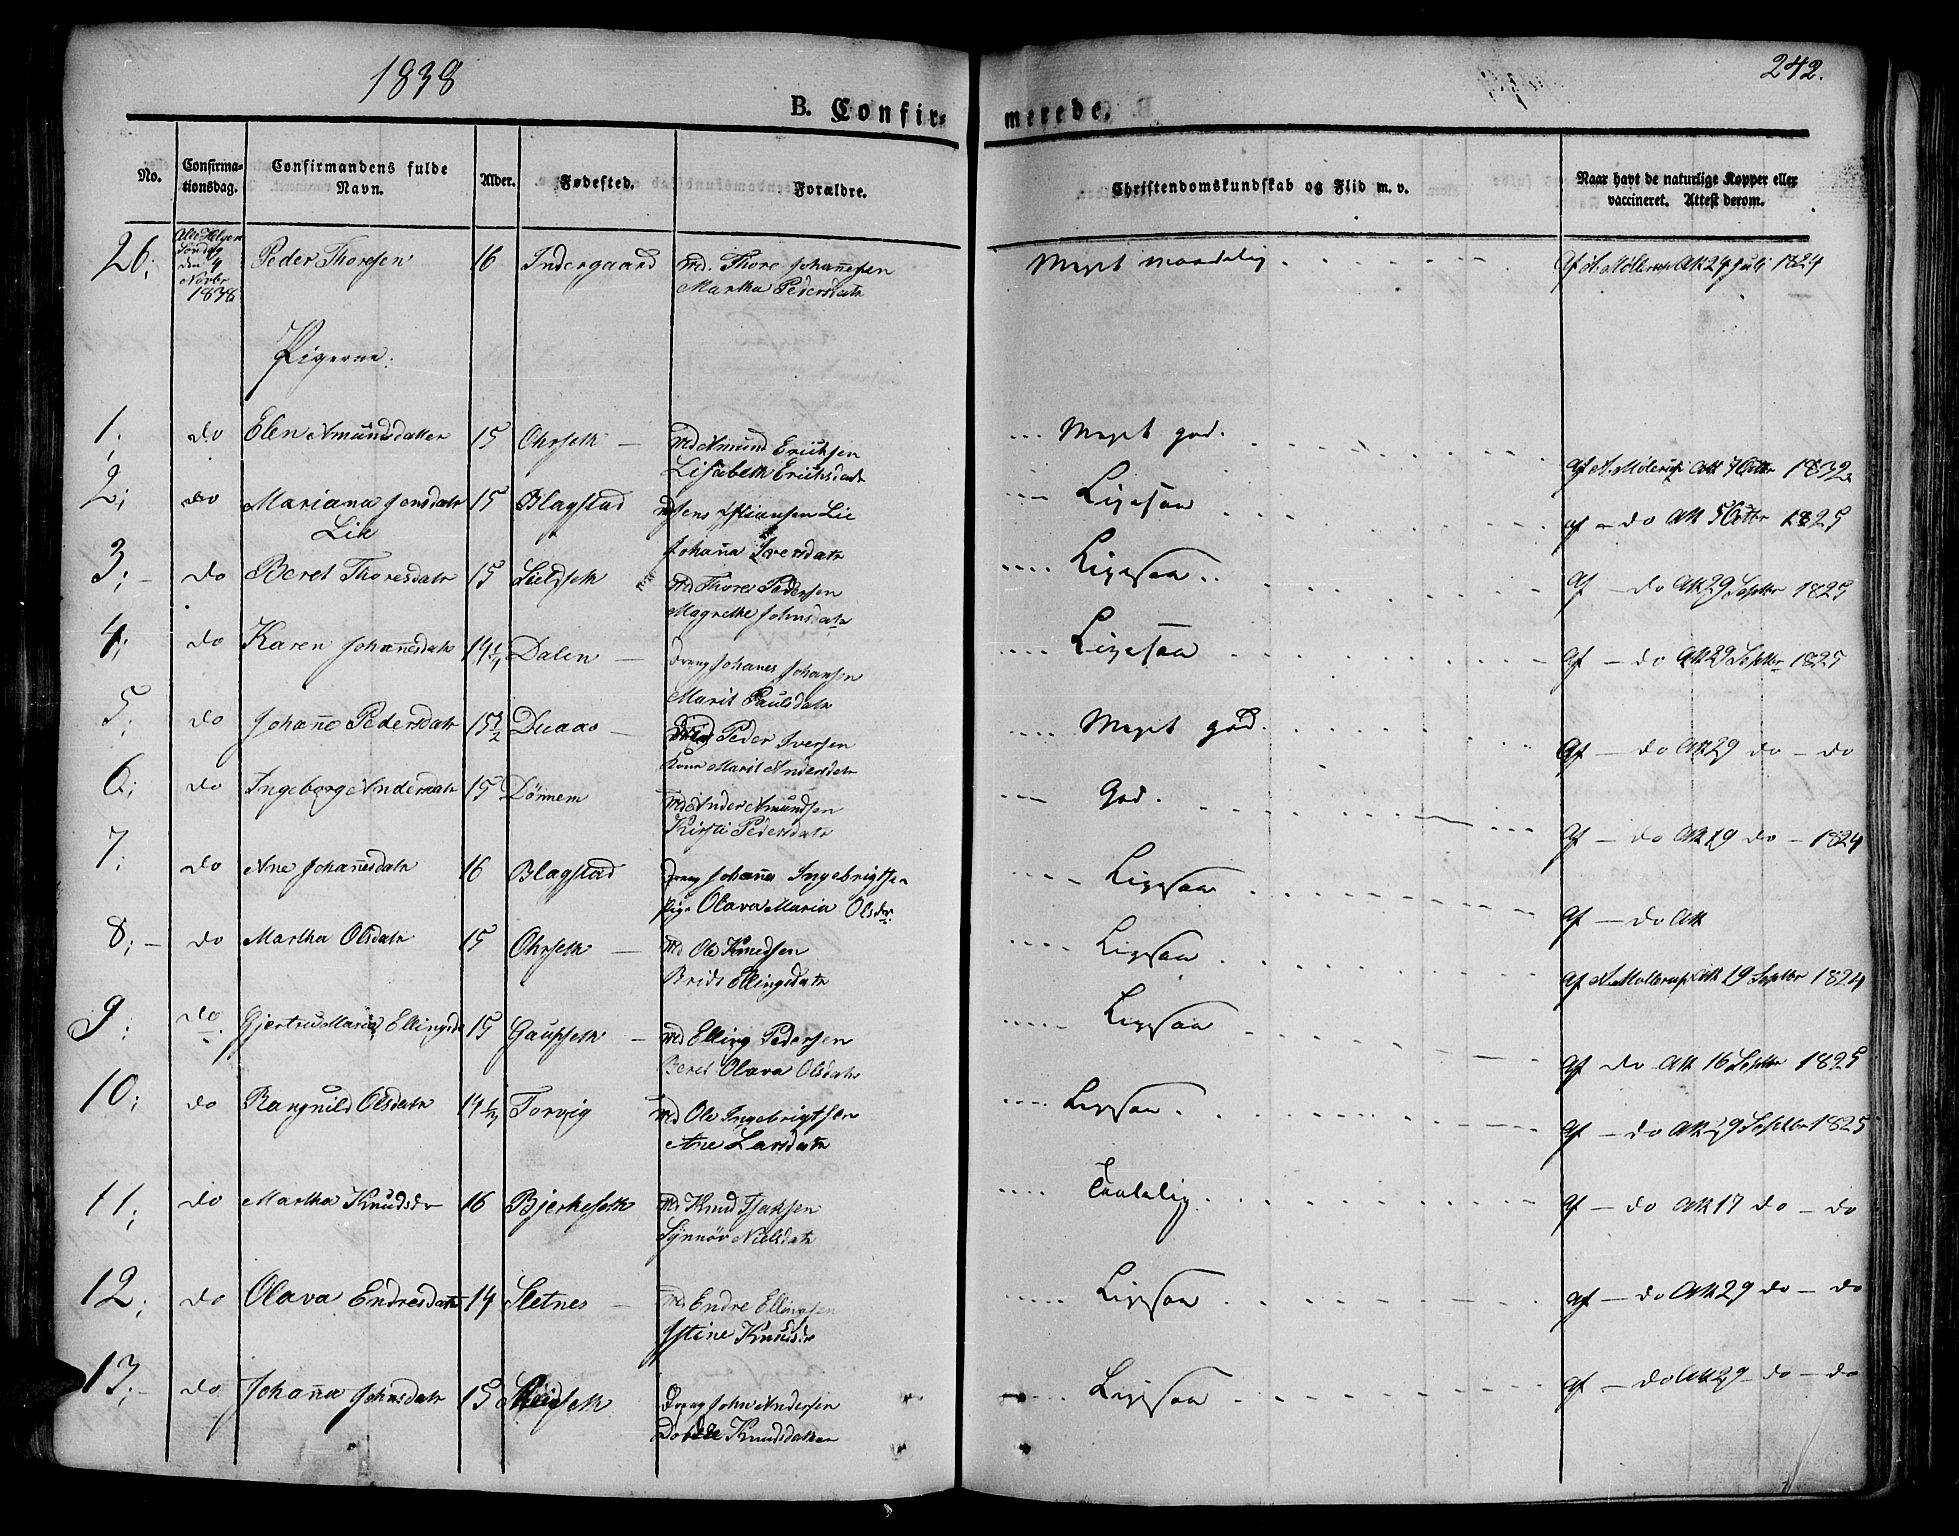 1838
242.
B. Confir-
merede.
No.
Confirma-
tionsdag.
Confirmandens fulde
Navn.
Alder.
Fødested.
Forældre.
Christendomskundskab og Flid m. v.
Naar havt de naturlige Kopper eller
vaccineret. Attest derom.
26;
Alle Helgen
Søndag
den 4
Novbr
1838
Peder Thoresen
16
Indergaard
Thore Johannesen
Martha Pedersdatr
Meget maadelig
af N. Møllerup Att 24 Juli 1824
Pigerne.
1; do Elen Amundsdatter 15 Ohrseth
Amund Erichsen
Lisabeth Erichsdatr
Meget god.
af N. Møllerup Att 7 Octbr 1832
2; do Mariana Jensdatr 15 Blagstad
Lie
Jens Lie
Johanna Iversdatr
Ligesaa
af do Att 5 Octbr 1825
3; do Beret Thoresdatr 15
Thore Pedersen
Magrethe Johnsdatr
Ligesaa
af do Att 29 Septbr 1825
4; do Karen Johannesdatr 14 Dalen
Johanes Johansen
Marit Paulsdatr
Ligesaa
af do Att 29 Septbr 1825
5; do Johanne Pedersdatr 15½
Peder Iversen
Kone Marit Andersdatr
Meget god.
af do Att 29 do do
6; do Ingeborg Andersdatr 15 Dönnem
Ander Amundsen
Kirsti Pedersdatr
God.
af do Att 29 do 1824
7; do Ane Johanesdatr 16 Blagstad
Johannes Ingebrigtsen
Pige Olava Maria Olsdr.
Ligesaa
af do Att
8; do Martha Olsdatr 15 Ohrseth
Ole Knudsen
Brite Ellingsdatr
Ligesaa
af N. Møllerup Att 19 Septbr 1824
9; do Gjertru Maria Ellingsd 15 Gaupseth
Elling Pedersen
Beret Olava Olsdatr
Ligesaa
af do Att 16 Septbr 1825
10; do Rangnild Olsdatr 14½ Torvig
Ole Ingebrigtsen
Ane Larsdatr
Ligesaa
af do Att 29 Septbr 1825
11; do Martha Knudsdr 16 Bjerkeseth
Knud Isaksen
Synnöv Nielsdatr
Taalelig
af do Att 17 do do
12; do Olava Endresdatr 14 Sletnes
Endre Ellingsen
Knudsdr
Ligesaa
af do Att 29 do do
13; do Johanna Johnsdatr 15
John Andersen
Knudsdatter
Ligesaa
af do Att 29 do do